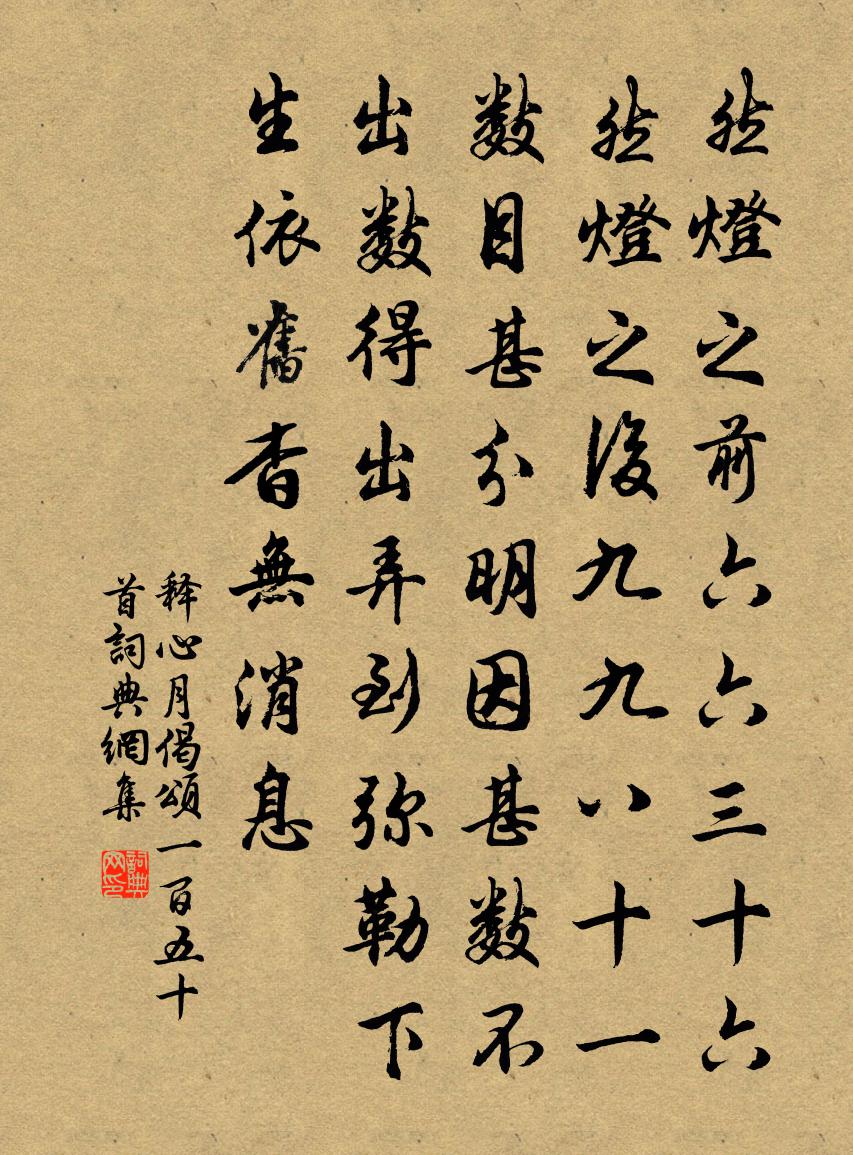 然燈之前六六三十六
然燈之後九九八十一
數目甚分明因甚數不
出數得出弄到弥勒下
生依舊杳無消息
释心月偈頌一百五十
首詞典網集
詞典
网印